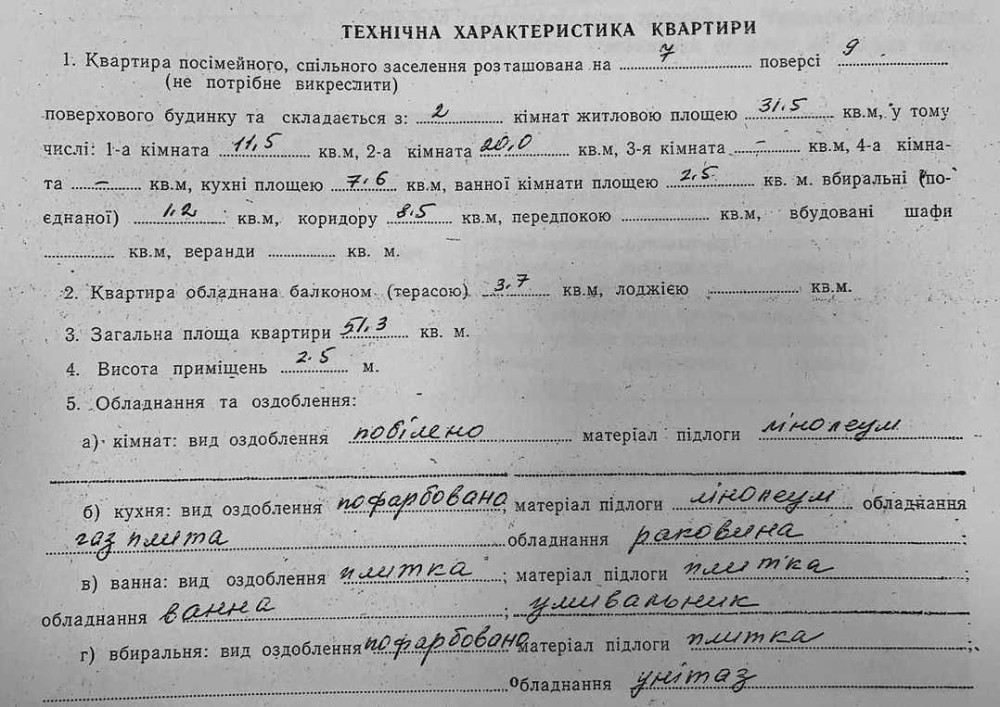 ТЕХНІЧНА ХАРАКТЕРИСТИКА КВАРТИРИ
1. Квартира посімейного, спільного заселення розташована на 7 поверсі 9
(не потрібне викреслити)
поверхового будинку та складається з: 2 кімнат житловою площею 31.5 кв.м, у тому
числі: 1-а кімната 11,5 кв.м, 2-а кімната 20,0 кв.м, 3-я кімната – кв.м, 4-а кімна-
та – кв.м, кухні площею 7.6 кв.м, ванної кімнати площею 2.5 кв. м. вбиральні (по-
єднаної) 1.2 кв.м, коридору 8.5 кв.м, передпокою ........ кв.м, вбудовані шафи
........ кв.м, веранди ........ кв. м.
2. Квартира обладнана балконом (терасою) 3.7 кв.м, лоджією ........ кв.м.
3. Загальна площа квартири 51,3 кв. м.
4. Висота приміщень 2.5 м.
5. Обладнання та оздоблення:
а) кімнат: вид оздоблення побілено матеріал підлоги лінолеум
б) кухня: вид оздоблення пофарбована, матеріал підлоги лінолеум обладнання
газ плита обладнання раковина ;
в) ванна: вид оздоблення плитка ; матеріал підлоги плитка ;
обладнання ванна ; умивальник
г) вбиральня: вид оздоблення пофарбована матеріал підлоги плитка ;
обладнання унітаз